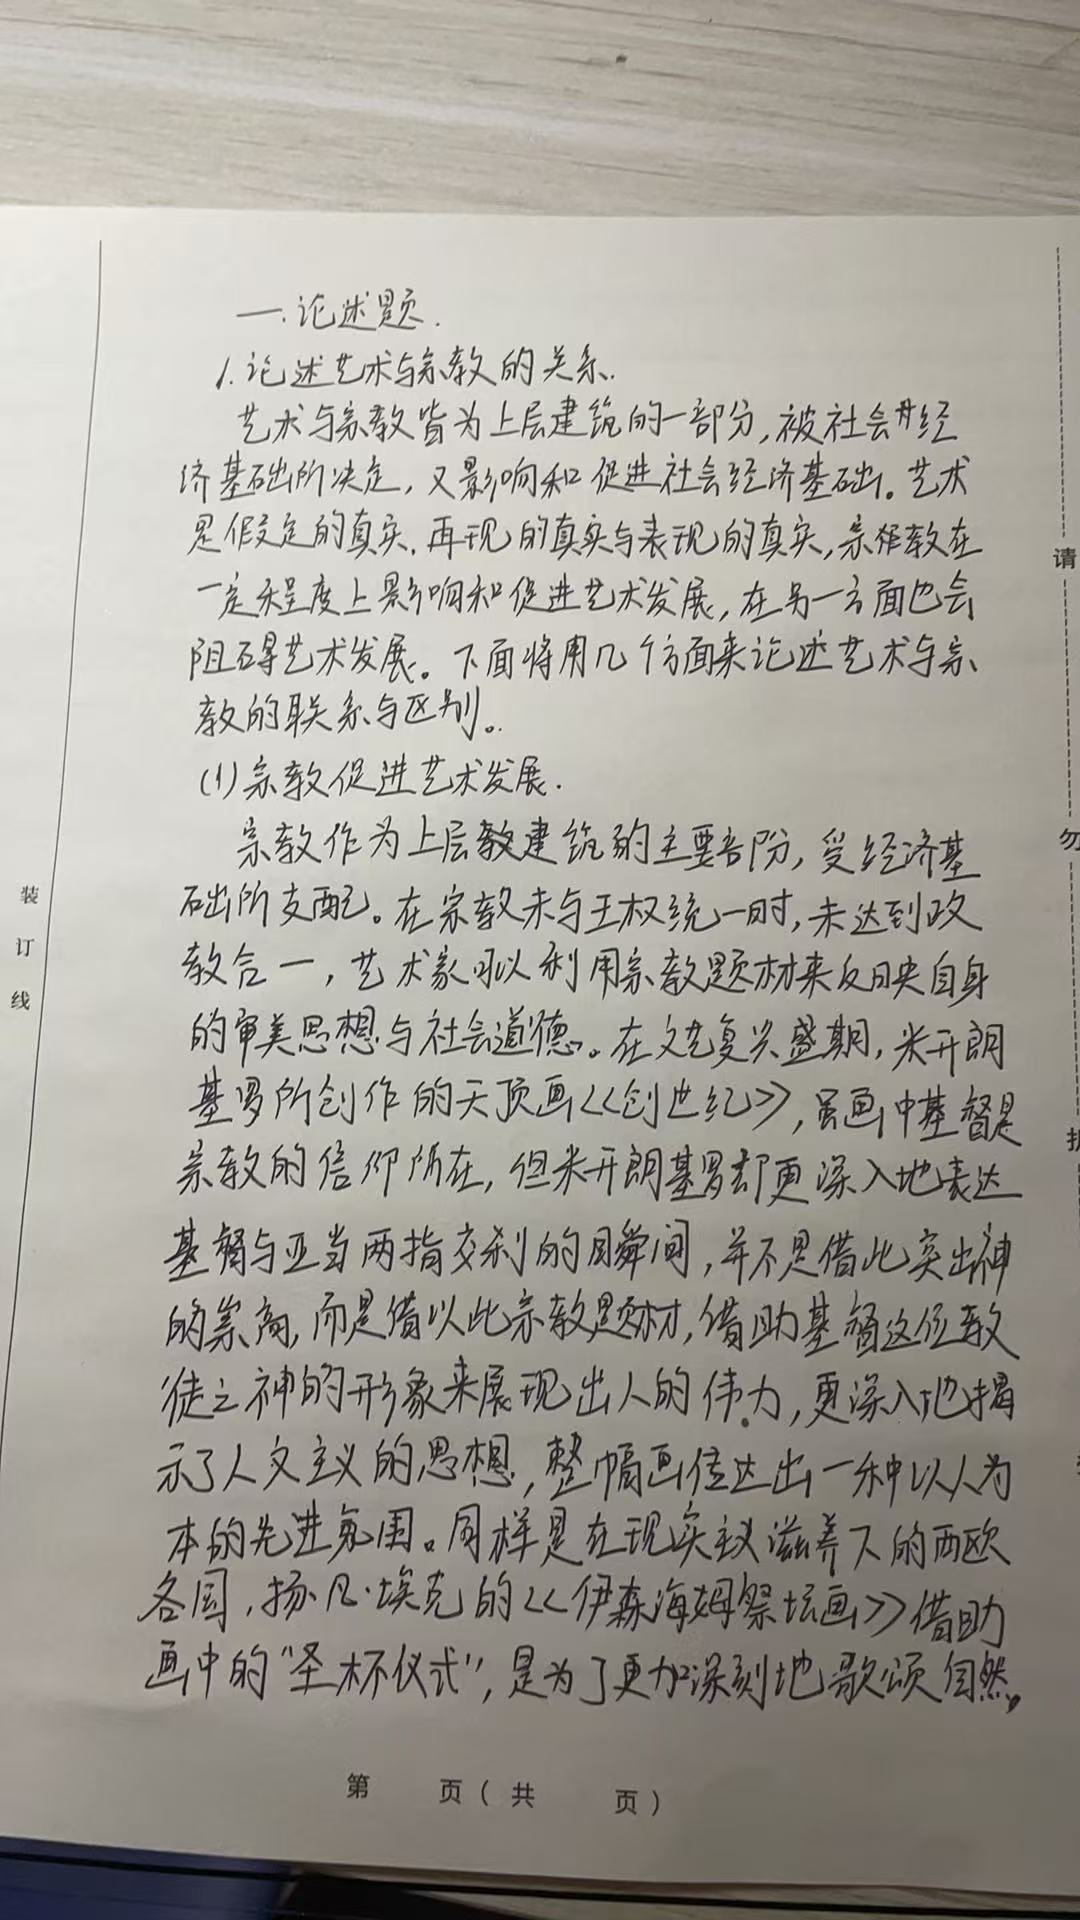 一.论述题.
1.论述艺术与宗教的关系.
艺术与宗教皆为上层建筑的一部分,被社会经
济基础所决定,又影响和促进社会经济基础。艺术
是假定的真实.再现的真实与表现的真实,宗教在
一定程度上影响和促进艺术发展,在另一方面也会
阻碍艺术发展。下面将用几个方面来论述艺术与宗
教的联系与区别。
(1)宗教促进艺术发展.
宗教作为上层建筑的主要部份,受经济基
础所支配。在宗教未与王权统一时,未达到政
教合一,艺术家可以利用宗教题材来反映自身
的审美思想与社会道德。在文艺复兴盛期,米开朗
基罗所创作的天顶画《创世纪》,虽画中基督是
宗教的信仰所在,但米开朗基罗却更深入地表达
基督与亚当两指交刹的瞬间,并不是借此突出神
的崇高,而是借以此宗教题材,借助基督这位教
徒之神的形象来展现出人的伟力,更深入地揭
示了人文主义的思想,整幅画传达出一种以人为
本的先进氛围。同样是在现实主义滋养下的西欧
各国,扬·凡·埃克的《伊森海姆祭坛画》借助
画中的"圣杯仪式",是为了更加深刻地歌颂自然,
第 页(共 页)
装
订
线
请
勿